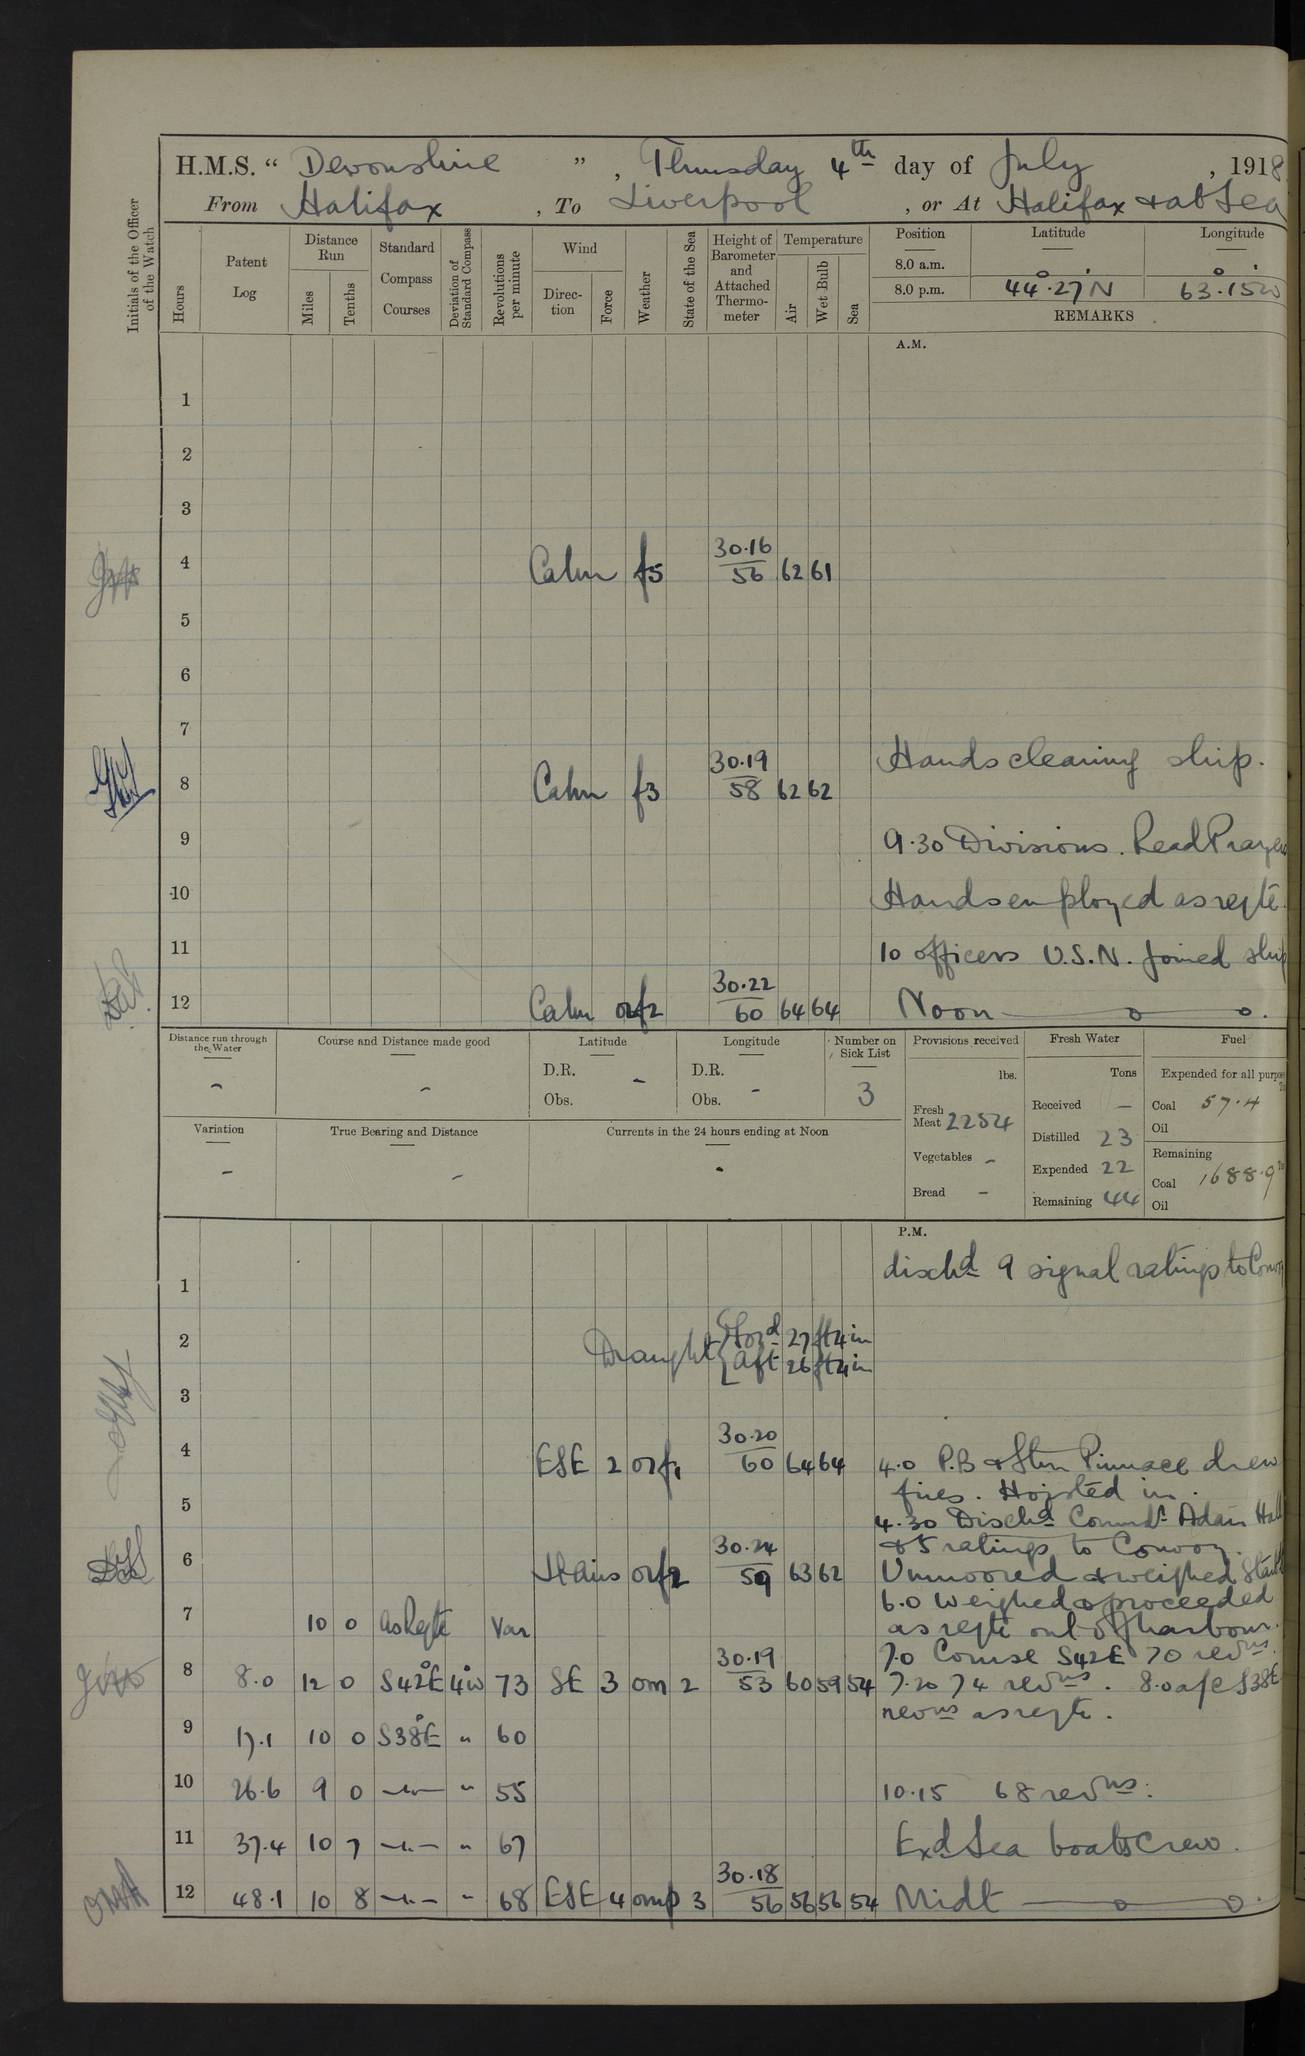 H.M.S. " Devonshire " , Thursday 4th day of July , 1918
From Halifax , To Liverpool , or At Halifax & at Sea
Initials of the Officer of the Watch
Hours
Patent Log
Distance Run
Miles
Tenths
Standard Compass Courses
Deviation of Standard Compass
Revolutions per minute
Wind
Direction
Force
Weather
State of the Sea
Height of Barometer and Attached Thermometer
Temperature
Air
Wet Bulb
Sea
Position Latitude Longitude
8.0 a.m.
8.0 p.m. 44° 27' N 63° 15' W
REMARKS
A.M.
1
2
3
4 Calm f5 30.16 56 62 61
5
6
7
Hands cleaning ship.
8 Calm f3 30.19 58 62 62
9 9.30 Divisions. Read Prayers
10 Hands employed as reqte.
11 10 officers U.S.N. joined ship
12 Calm orf2 30.22 60 64 64 Noon
Distance run through the Water -
Course and Distance made good -
Latitude D.R. Obs. -
Longitude D.R. Obs. -
Number on Sick List 3
Provisions received
lbs.
Fresh Meat 2254
Vegetables -
Bread -
Fresh Water
Tons
Received -
Distilled 23
Expended 22
Remaining 44
Fuel
Expended for all purpose
Coal 57.4
Oil
Remaining
Coal 1688.9
Oil
Variation -
True Bearing and Distance -
Currents in the 24 hours ending at Noon -
P.M.
1 dischd 9 signal ratings to Convoy
2 Draught { Ford 27 ft 4 in
{ Aft 26 ft 4 in
3
4 ESE 2 orf1 30.20 60 64 64 4.0 P.B & Stm Pinnace drew
fires. Hoisted in.
5 4.30 Dischd Commdr Adair Hall
& 5 ratings to Convoy.
6 orf2 30.24 59 63 62 Unmoored & weighed Starbd
6.0 Weighed & proceeded
7 10 0 As Reqte Var as reqte out of harbour.
7.0 Course S42E 70 revns.
8 8.0 12 0 S42°E 4W 73 SE 3 om 2 30.19 53 60 59 54 7.20 74 revns. 8.0 a/c S38E
revns as reqte.
9 17.1 10 0 S38°E " 60
10 26.6 9 0 -"- " 55 10.15 68 revns.
11 37.4 10 7 -"- " 67 Exd Sea boats Crew.
12 48.1 10 8 -"- " 68 ESE 4 omp 3 30.18 56 56 56 54 Midt